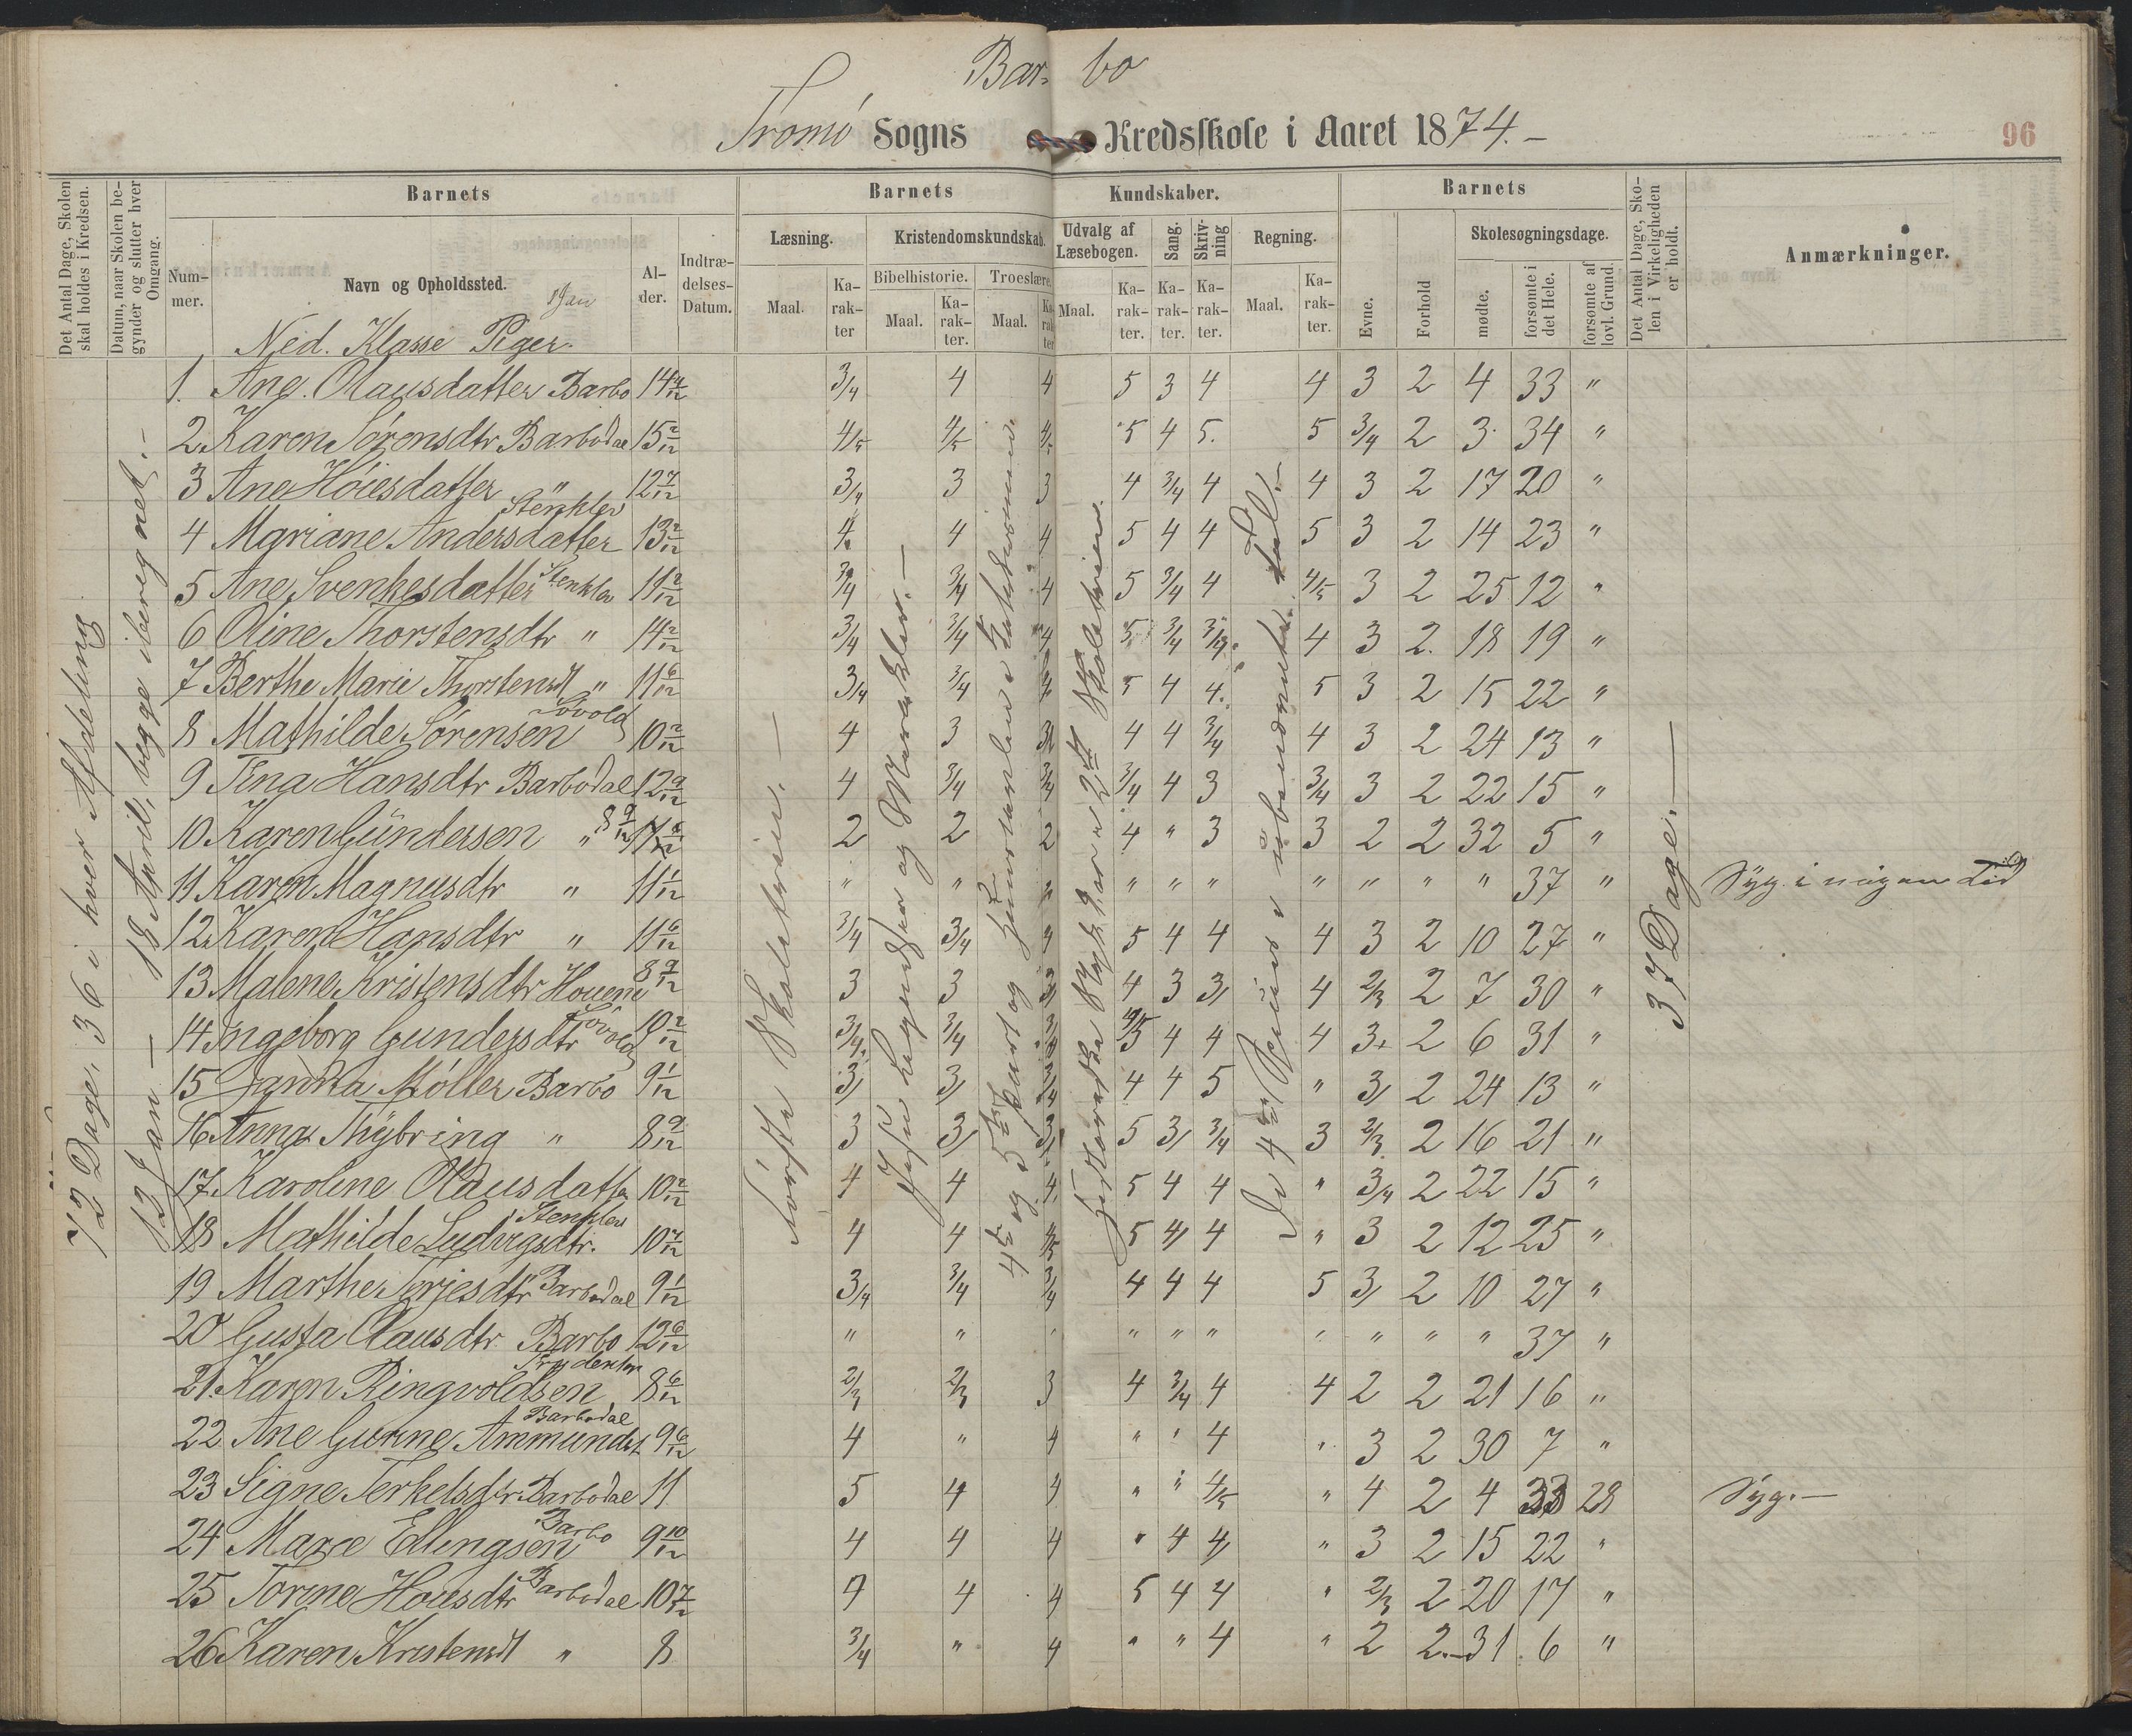 Bar- bo
Tromø Sogns Kredsskole i Aaret 1874.-
96
Det Antal Dage, Skolen skal holdes i Kredsen.
Datum, naar Skolen begynder og slutter hver Omgang.
Barnets
Barnets
Kundskaber.
Barnets
Det Antal Dage, Skolen i Virkeligheden er holdt.
Anmærkninger.
Nummer.
Navn og Opholdssted.
1 Jan
Alder.
Indtrædelses-Datum.
Læsning.
Kristendomskundskab.
Udvalg af Læsebogen.
Sang.
Skrivning
Regning.
Evne.
Forhold
Skolesøgningsdage.
Bibelhistorie.
Troeslære.
Maal. Karakter
Maal. Karakter.
Maal. Karakter
Maal. Karakter. Karakter. Karakter.
Maal. Karakter.
mødte.
forsømte i det Hele.
forsømte af lovl. Grund.
Ned. Klasse Piger.
72 Dage, 36 i hver Afdeling
12 Jan — 18 April, begge iberegnet.-
37 Dage.—
1. Ane. Olausdatter Barbo 14 4/12 3/4 4 4 5 3 4 4 3 2 4 33 "
2. Karen Sørensdtr Barbodal 15 2/12 4/5 4/5 4/5 5 4 5. 5 3/4 2 3 34 "
3 Ane Høiesdatter " 12 7/12 3/4 3 3 4 3/4 4 4 3 2 17 20 "
4 Mariane Andersdatter Stenklev 13 2/12 4 4 4 5 4 4 5 3 2 14 23 "
5 Ane Svenkesdatter Stenklev 11 2/12 3/4 3/4 4 5 3/4 4 4/5 3 2 25 12 "
6 Oline Thorstensdtr " 14 2/12 3/4 3/4 4 5 3/4 3/4 4 3 2. 18 19 "
7 Berthe Marie Thorstensdt " 11 6/12 3/4 3/4 4 5 4 4. 5 3 2 15 22 "
8 Mathilde Sørensen 10 2/12 4 3 3/4 4 4 3/4 4 3 2 24 13 "
9 Tena Hansdtr Barbodal 12 9/12 4 3/4 3/4 3/4 4 3 3/4 3 2 22 15 "
10 Karen Gundersen " 8 9/12 2 2 2 4 " 3 3 2 2 32 5 "
11 Karen Magnusdtr " 11 1/12 " " " " " " " " " " 37 " Syg i nogen Tid
12 Karen Hansdtr " 11 6/12 3/4 3/4 4 5 4 4 4 3 2 10 27 "
13 Malene Kristensdtr Houene 8 9/12 3 3 3/ 4 3 3/ 4 2/3 2 7 30 "
14 Ingeborg Gundersdtr 10 2/12 3/4 3/4 4/5 4 4 4 3 2 6 31 "
15 Jarika Møller Barbo 9 1/12 3/ 3/ 3/4 4 4 5 " 3/ 2 24 13 "
16 Anna Thybring " 8 9/12 3 3/ 3/ 5 3/ 3/4 3 2/3 2 16 21 "
17. Karoline Olausdatter 10 2/12 4 4 4. 5 4 4 " 3/4 2 22 15 "
18 Mathilde Ludvigsdtr. Stenklev 10 7/12 4 4 4/5 5 4/ 4 " 3 2 12 25 "
19 Marthe Terjesdtr Barbodal 9 1/12 3/4 3/4 3/4 4 4 4 5 3/ 2 10 27 "
20 Gusta Olausdtr Barbo 12 6/12 " " " " " " " " " " 37 "
21. Karen Ringvoldsen 8 6/12 2/3 2/3 3 4 3/4 4 4 2 2 21 16 "
22 Ane Gurine Ammundst Barbodal 9 6/12 4 " 4 " " 4 " 3 2 30 7 "
23 Signe Terkelsdtr Barbodal 11 5 4 4 " " 4/5 " 4 2 4 33 28 Syg.—
24 Marie Ellingsen Barbo 9 10/12 4 4 4 " 4 4/ " 3 2 15 22 "
25 Torine Houesdtr Barbodal 10 7/12 4 4 4 5 4 4 " 2/3 2 20 17 "
26 Karen Kristensdt " 8 3/4 " 4 " " 4 " 2 2.- 31. 6 "